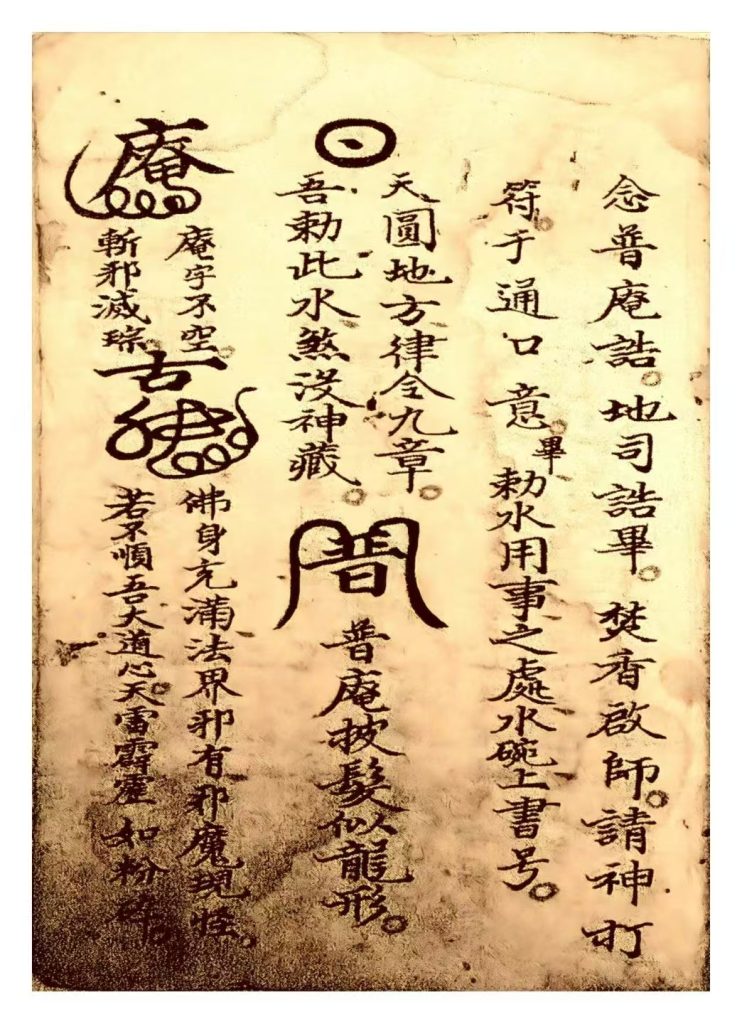 念普庵誥。地司誥畢。焚香啟師。請神打
符于通口意。畢勅水用事之處水碗上書号。
天圓地方律令九章。
吾勅此水煞没神藏。
普
普庵披髮似龍形。
庵
庵字不空。
斬邪滅踪。
古
佛身充滿法界邪有邪魔現怪。
若不順吾大道心天雷霹靂如粉碎。